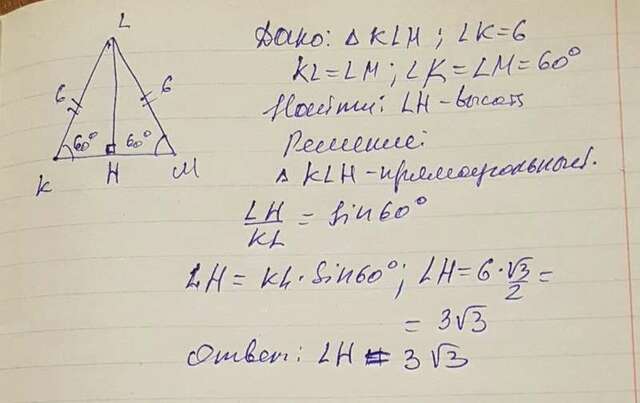 L
6 6
60° 60°
K H M
Дано: △ KLH; LK=6
KL=LM; ∠K=∠M=60°
Найти: LH-высоту
Решение:
△ KLH-прямоугольный.
LH/KL = Sin60°
LH= KL·Sin60°; LH=6·√3/2=
= 3√3
Ответ: LH = 3√3